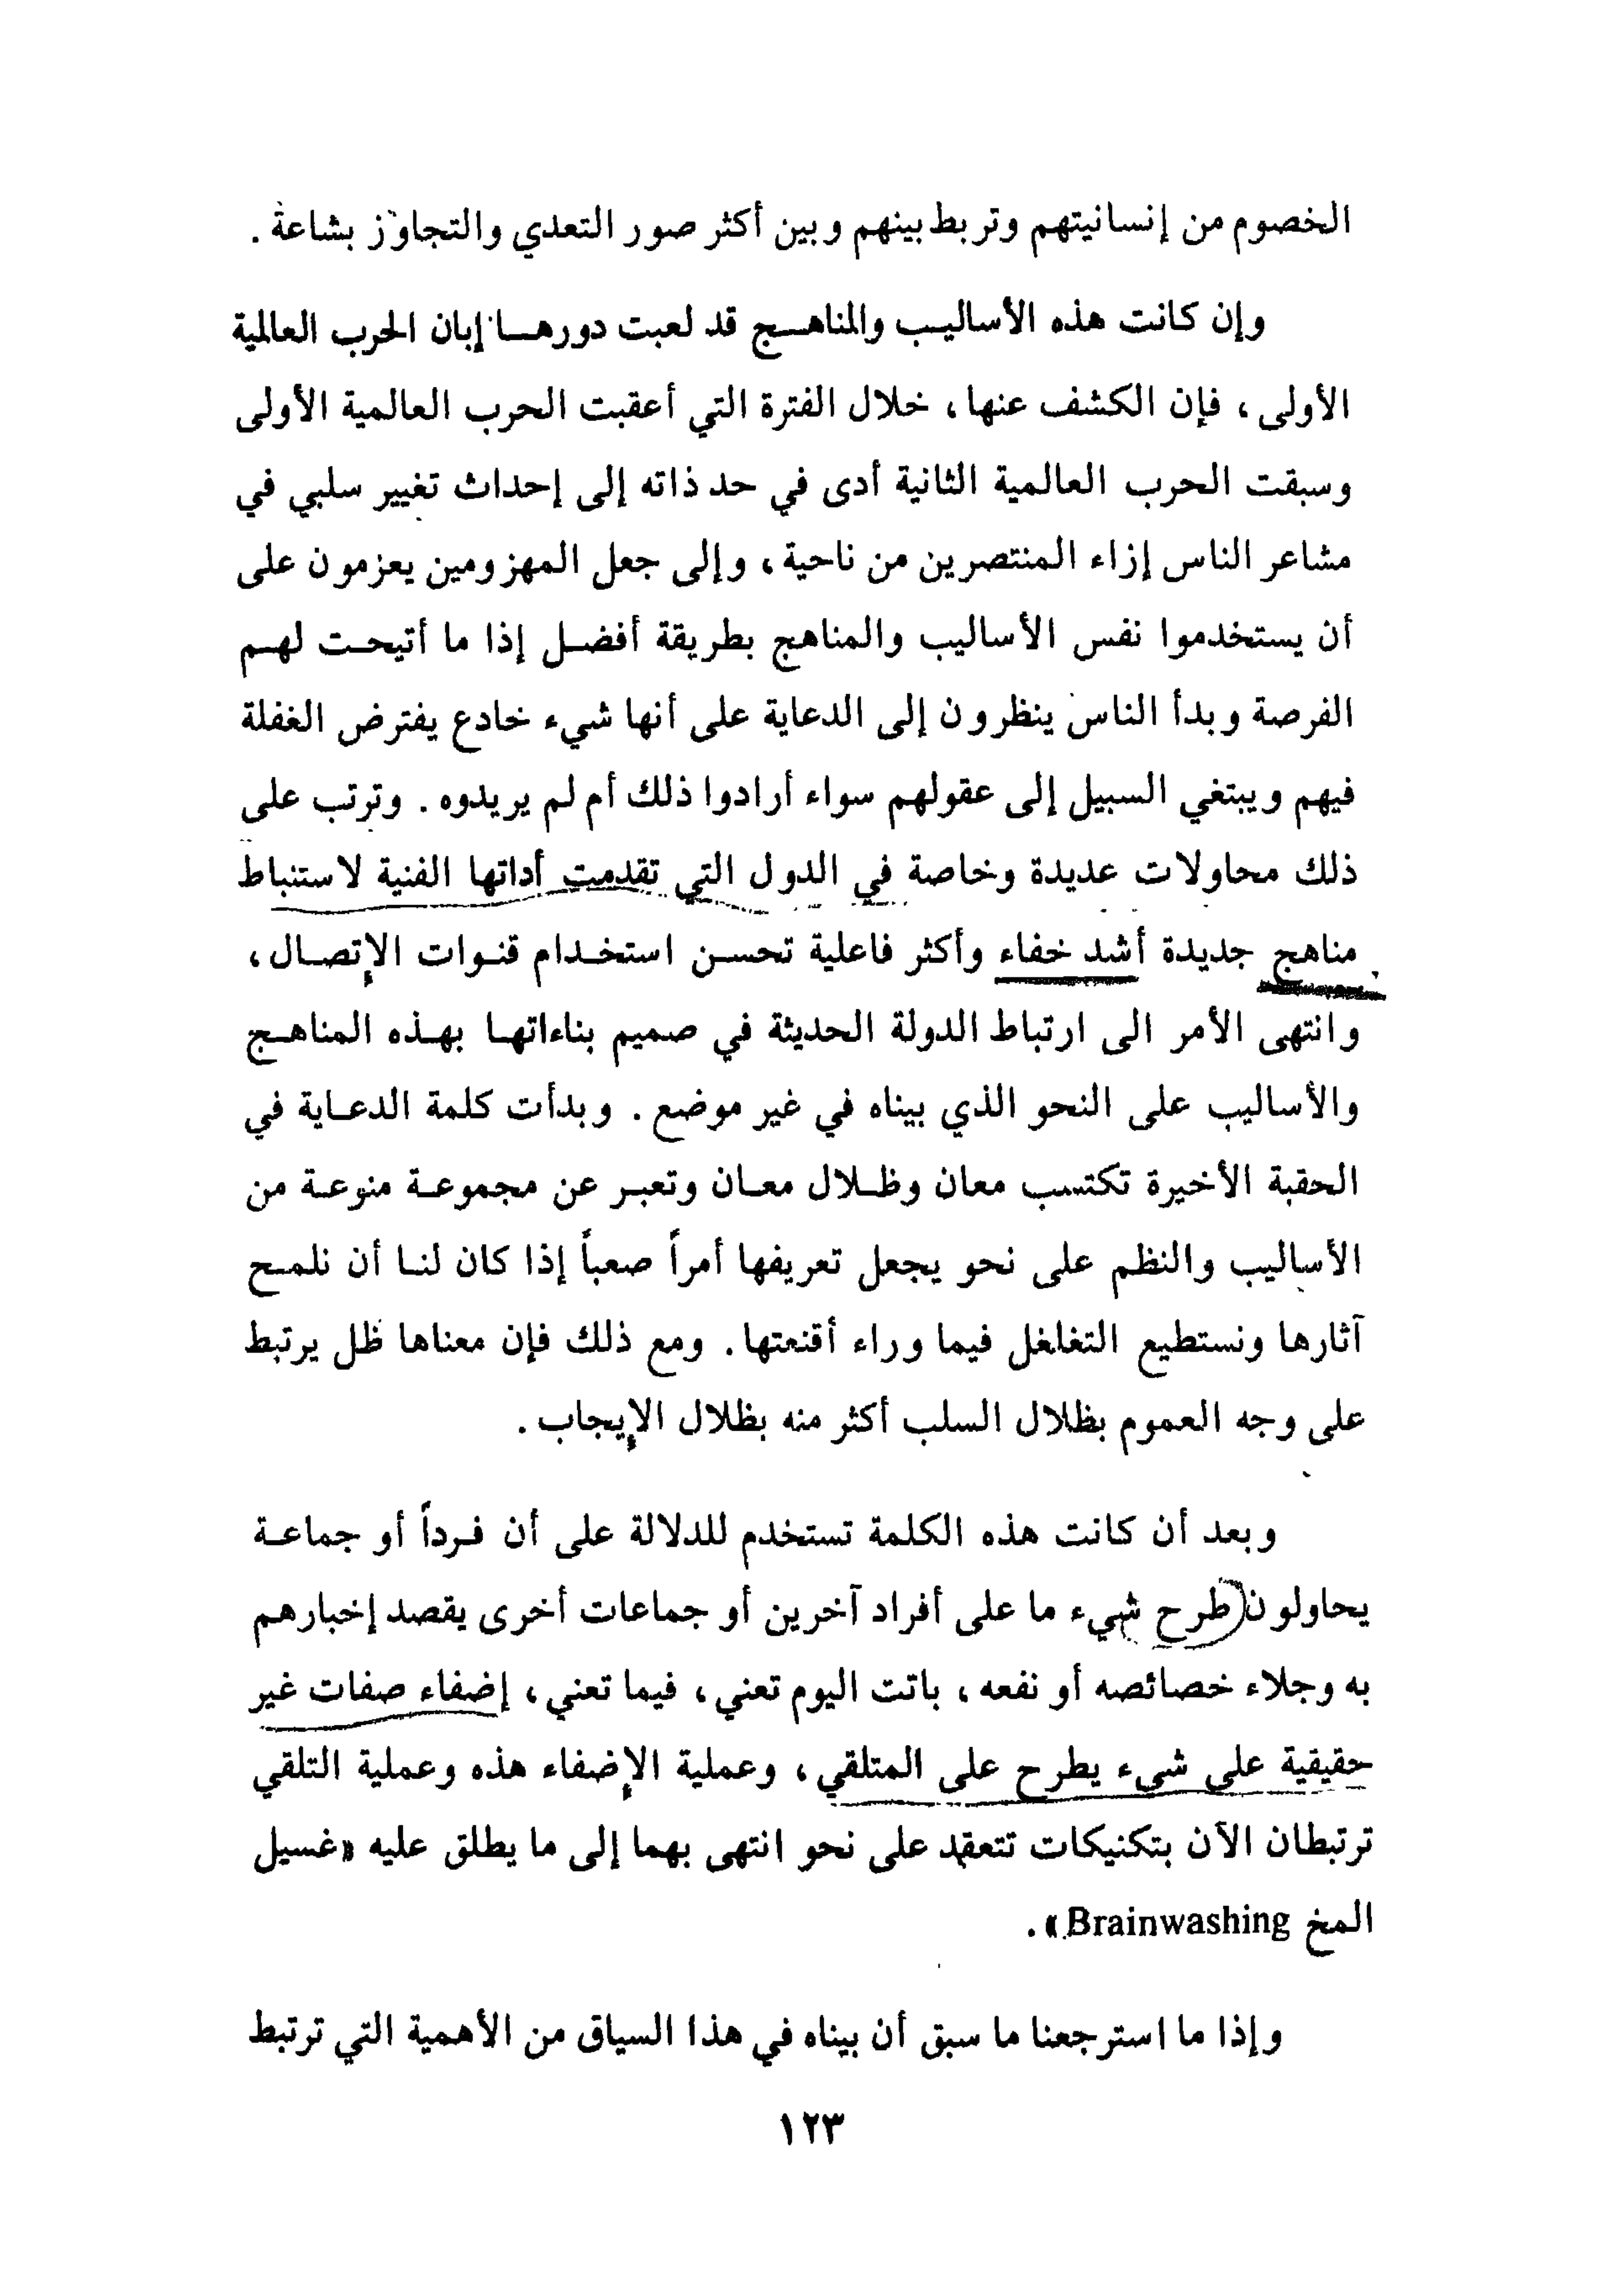 الخصوم من إنسانيتهم وتربط بينهم وبين أكثر صور التعدي والتجاوز بشاعة .
وإن كانت هذه الأساليب والمناهج قد لعبت دورها إبان الحرب العالمية
الأولى ، فإن الكشف عنها ، خلال الفترة التي أعقبت الحرب العالمية الأولى
وسبقت الحرب العالمية الثانية أدى في حد ذاته إلى إحداث تغيير سلبي في
مشاعر الناس إزاء المنتصرين من ناحية ، وإلى جعل المهزومين يعزمون على
أن يستخدموا نفس الأساليب والمناهج بطريقة أفضل إذا ما أتيحت لهم
الفرصة وبدأ الناس ينظرون إلى الدعاية على أنها شيء خادع يفترض الغفلة
فيهم ويبتغي السبيل إلى عقولهم سواء أرادوا ذلك أم لم يريدوه . وترتب على
ذلك محاولات عديدة وخاصة في الدول التي تقدمت أداتها الفنية لاستنباط
مناهج جديدة أشد خفاء وأكثر فاعلية تحسن استخدام قنوات الإتصال ،
وانتهى الأمر الى ارتباط الدولة الحديثة في صميم بناءاتها بهذه المناهج
والأساليب على النحو الذي بيناه في غير موضع . وبدأت كلمة الدعاية في
الحقبة الأخيرة تكتسب معان وظلال معان وتعبر عن مجموعة منوعة من
الأساليب والنظم على نحو يجعل تعريفها أمراً صعباً إذا كان لنا أن نلمح
آثارها ونستطيع التغلغل فيما وراء أقنعتها . ومع ذلك فإن معناها ظل يرتبط
على وجه العموم بظلال السلب أكثر منه بظلال الإيجاب .
وبعد أن كانت هذه الكلمة تستخدم للدلالة على أن فرداً أو جماعة
يحاولون طرح شيء ما على أفراد آخرين أو جماعات أخرى يقصد إخبارهم
به وجلاء خصائصه أو نفعه ، باتت اليوم تعني ، فيما تعني ، إضفاء صفات غير
حقيقية على شيء يطرح على المتلقي ، وعملية الإضفاء هذه وعملية التلقي
ترتبطان الآن بتكنيكات تتعقد على نحو انتهى بهما إلى ما يطلق عليه «غسيل
المخ Brainwashing» .
وإذا ما استرجعنا ما سبق أن بيناه في هذا السياق من الأهمية التي ترتبط
١٢٣